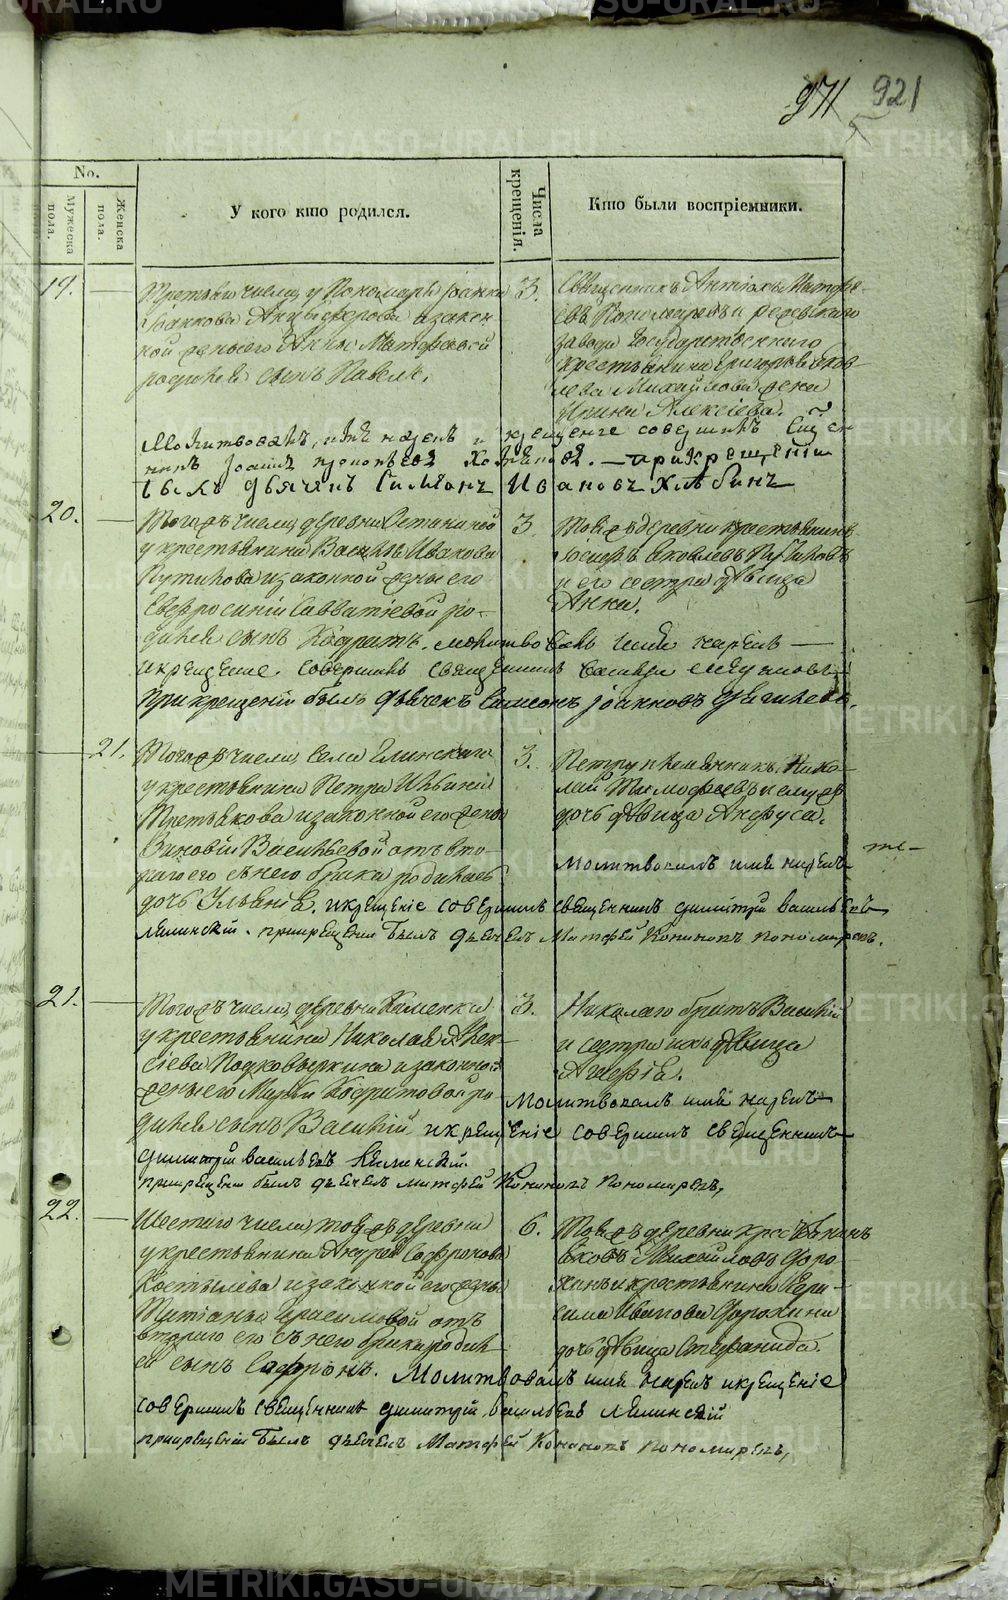 971 921
No.
Мужеска пола.
Женска пола.
У кого кто родился.
Числа крещенія.
Кто были воспріемники.
19.
Третьяго числа у Пономаря Іоанна
Іоаннова Анцыферова и закон
ной жены его Анны Матфеевой
родился сынъ Павелъ.
3.
Священникъ Антипа Матфе-
евъ Пономаревъ и режевскаго
завода Государственнаго
крестьянина Григорья Яков
лева Михайлова жена
Ирина Алексіева.
Молитвовалъ, имя нарекъ и крещеніе совершилъ Священ
никъ Іоаннъ. — при крещеніи
былъ дьячекъ Симеонъ Ивановъ Хлѣбинъ
20.
Тогожъ числа, деревни Останиной
у крестьянина Василья Иванова
Путилова и законной жены его
Евфросиніи Савватіевой ро-
дился сынъ Кодратъ. молитвовалъ имя нарекъ —
и крещеніе. совершилъ священникъ
При крещеніи былъ дьячекъ Симеонъ Іоанновъ
3.
Тояжъ деревни крестьянинъ
Іосифъ Яковлевъ
и его сестра дѣвица
Анна.
21.
Тогожъ числа, села Глинскаго
у крестьянина Петра Ильина
Третьякова и законной его жены
Зиновіи Васильевой отъ вто-
раго его с нею брака родилась
дочь Ульянія. и крещеніе совершилъ священникъ Димитрій Васильевъ
Ляпинскій. при крещеніи былъ дьячекъ Матфей Кононовъ Пономаревъ.
3.
Петру племянникъ Нико-
лай Тимофеевъ и ему ж
дочь дѣвица Анфуса.
Молитвовалъ имя нарекъ
21.
Тогожъ числа, деревни Каменки
у крестьянина Николая Алек-
сіева Подковыркина и законной
жены его Марьи Кодратовой ро-
дился сынъ Василій и крещеніе совершилъ священникъ
Димитрій Васильевъ Ляпинскій.
при крещеніи былъ дьячекъ Матфей Кононовъ Пономаревъ,
3.
Николаю братъ Василій
и сестра ихъ дѣвица
Агафія.
Молитвовалъ имя нарекъ
22.
Шестаго числа, тояжъ деревни
у крестьянина Андрея Софронова
Костылева и законной его жены
Татіаны Герасимовой отъ
втораго его с нею брака родил
ся сынъ Софронъ. Молитвовалъ имя нарекъ и крещеніе
совершилъ священникъ Димитрій Васильевъ Ляпинскій
при крещеніи былъ дьячекъ Матфей Кононовъ Пономаревъ,
6.
Тояжъ деревни крестьянинъ
Яковъ Михайловъ Доро
хинъ и крестьянина Гера-
сима Иванова Дорохина
дочь дѣвица Стефанида.
METRIKI.GASO-URAL.RU